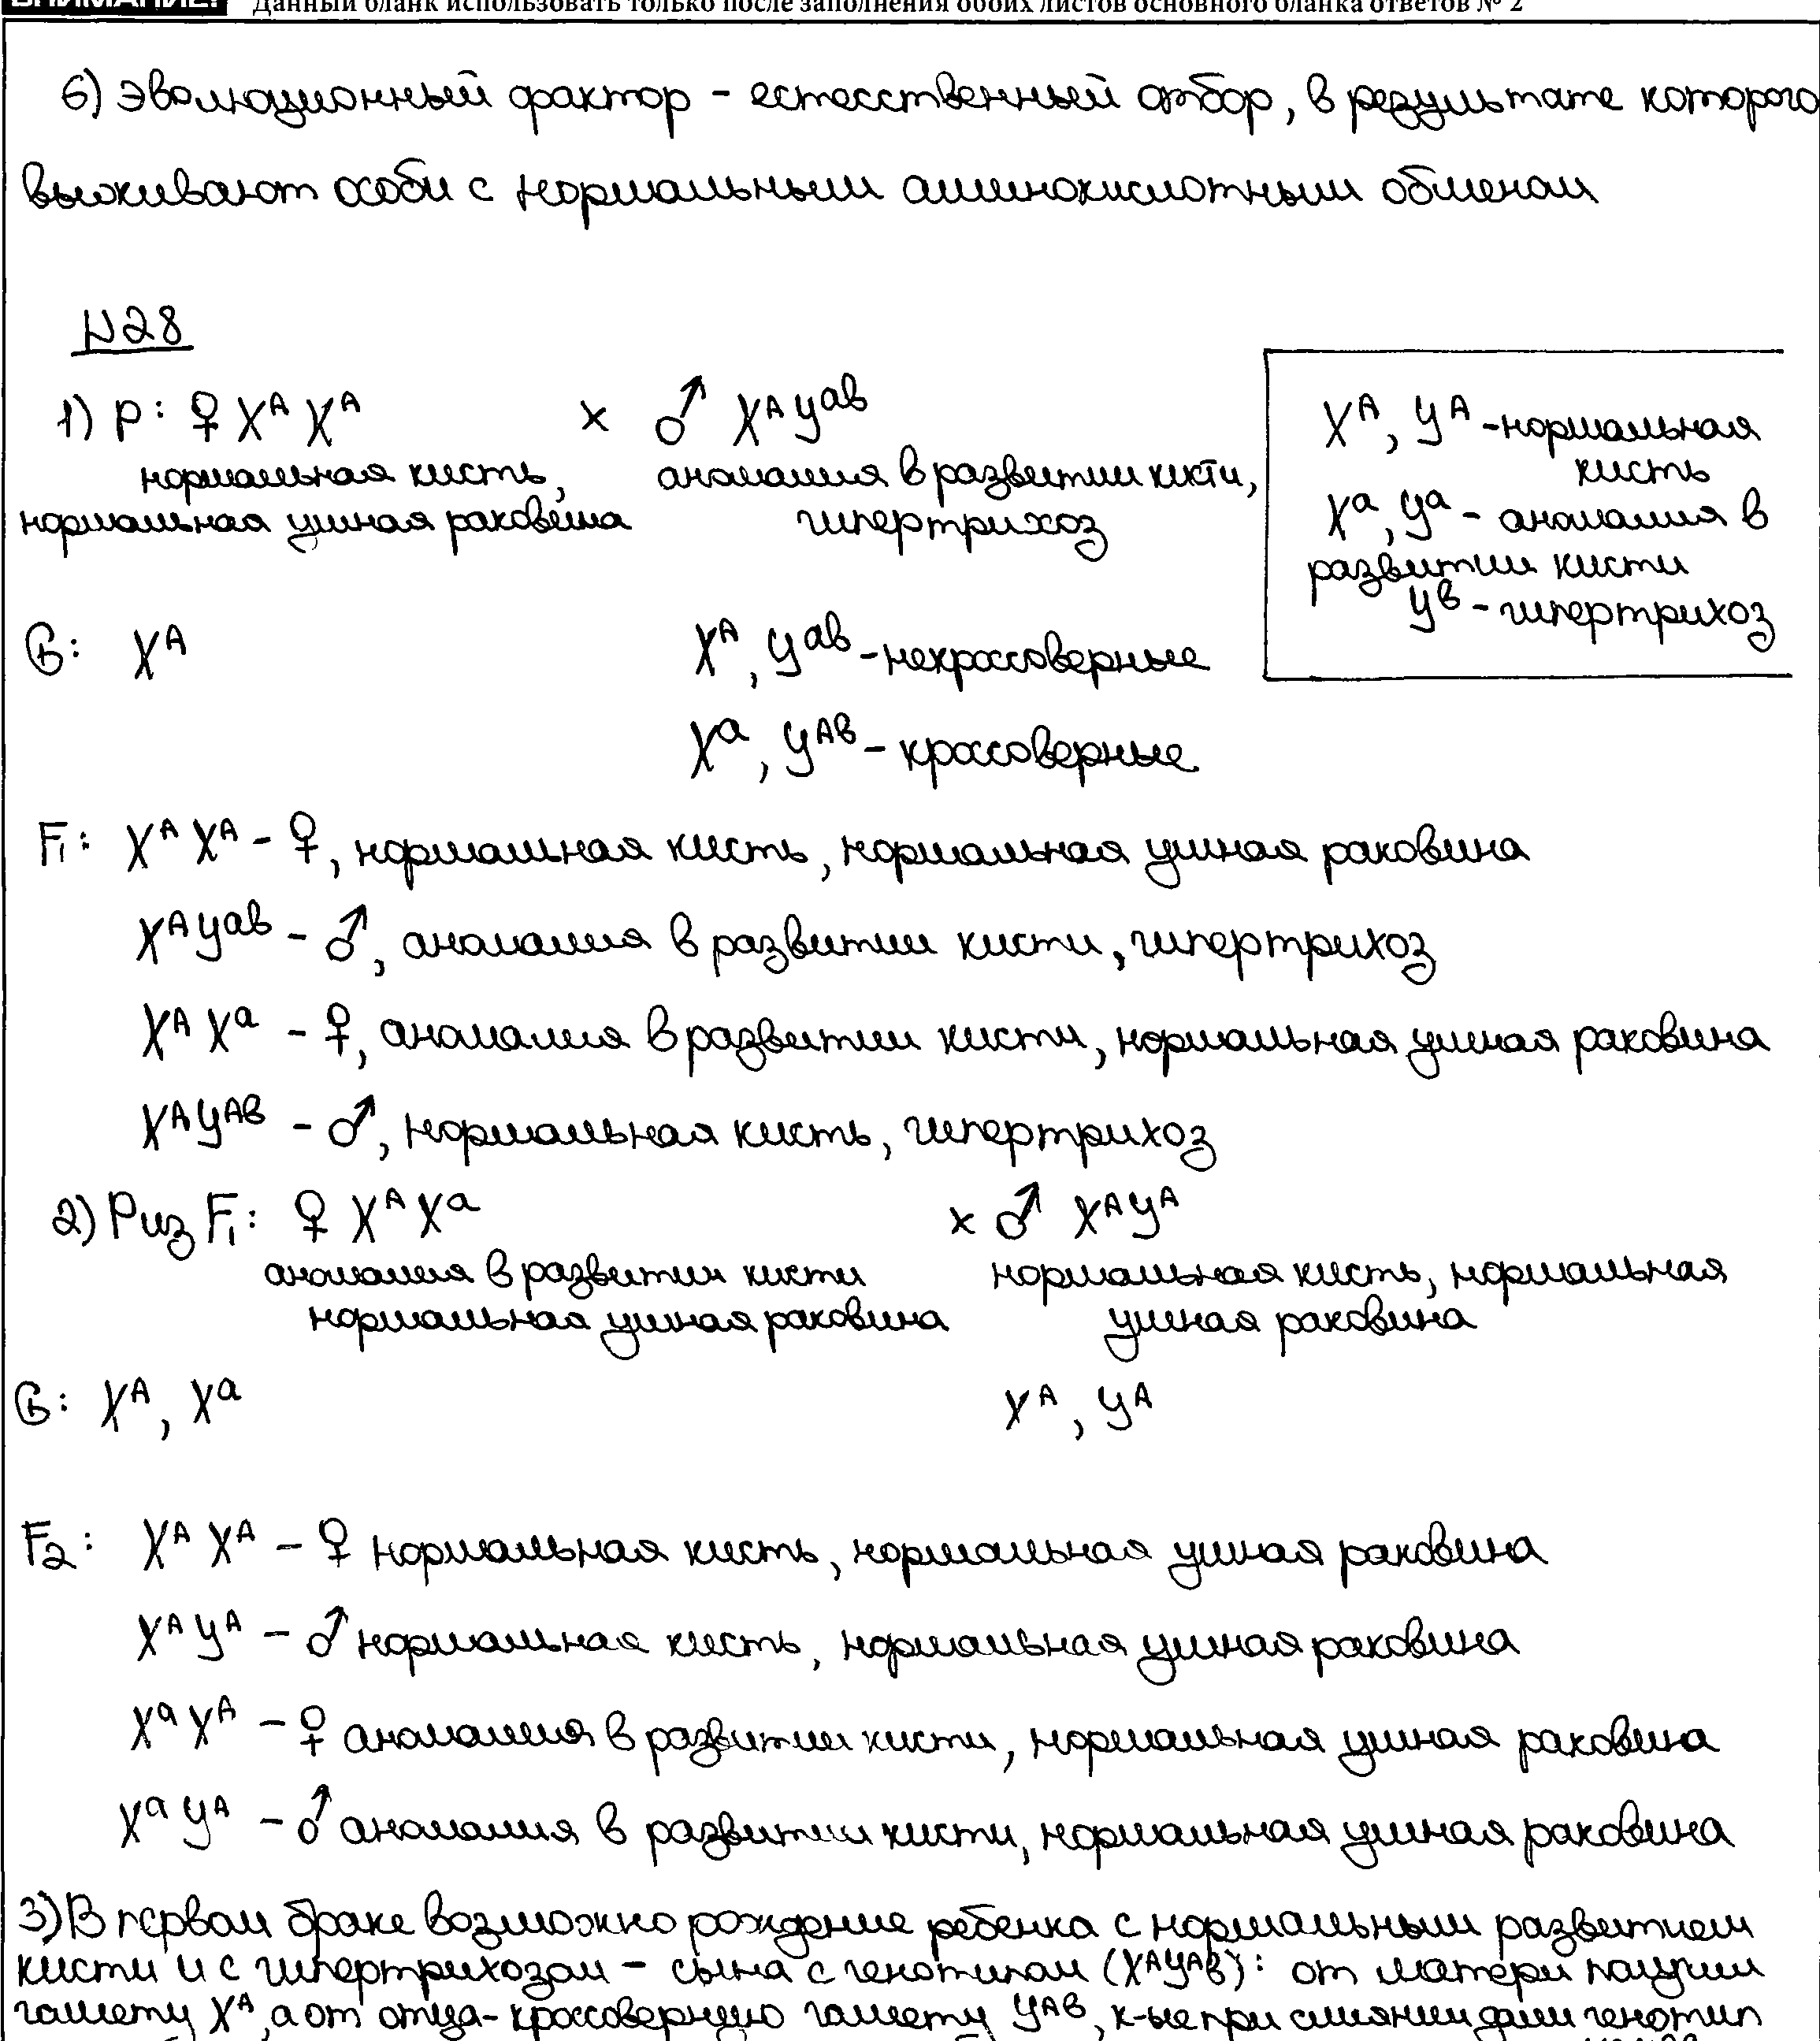 ВНИМАНИЕ! Данный бланк использовать только после заполнения обоих листов основного бланка ответов № 2
6) Эволюционный фактор - естесственный отбор, в результате которого
выживают особи с нормальным аминокислотным обменом
N28
1) P: ♀ X^A X^A × ♂ X^A Y^ab
нормальная кисть, аномалия в развитии кисти,
нормальная ушная раковина гипертрихоз
X^A, Y^A - нормальная
кисть
X^a, Y^a - аномалия в
развитии кисти
Y^b - гипертрихоз
G: X^A X^A, Y^ab - некроссоверные
X^a, Y^Ab - кроссоверные
F1: X^A X^A - ♀, нормальная кисть, нормальная ушная раковина
X^A Y^ab - ♂, аномалия в развитии кисти, гипертрихоз
X^A X^a - ♀, аномалия в развитии кисти, нормальная ушная раковина
X^A Y^Ab - ♂, нормальная кисть, гипертрихоз
2) P из F1: ♀ X^A X^a × ♂ X^A Y^A
аномалия в развитии кисти нормальная кисть, нормальная
нормальная ушная раковина ушная раковина
G: X^A, X^a X^A, Y^A
F2: X^A X^A - ♀ нормальная кисть, нормальная ушная раковина
X^A Y^A - ♂ нормальная кисть, нормальная ушная раковина
X^a X^A - ♀ аномалия в развитии кисти, нормальная ушная раковина
X^a Y^A - ♂ аномалия в развитии кисти, нормальная ушная раковина
3) В первом браке возможно рождение ребенка с нормальным развитием
кисти и с гипертрихозом - сына с генотипом (X^A Y^Ab): от матери получил
гамету X^A, а от отца - кроссоверную гамету Y^Ab, к-ые при слиянии дали генотип